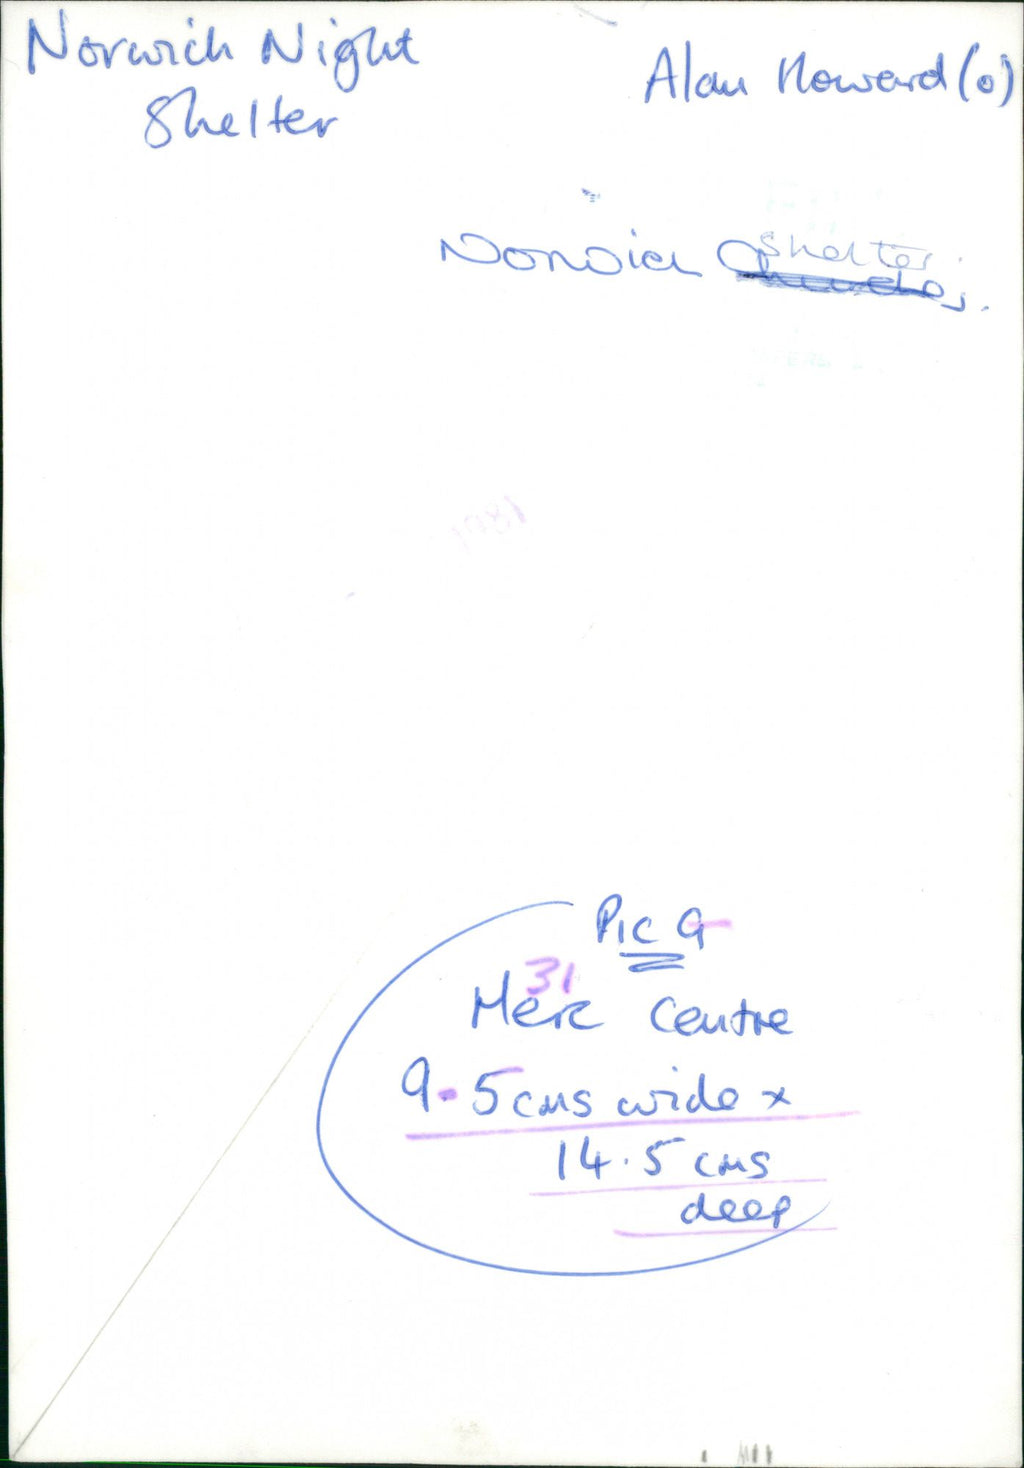 Norwich Night
Shelter
Alan Howard (o)
Shelter
Norwich
Pic 9
31
Merc Centre
9.5 cms wide x
14.5 cms
deep